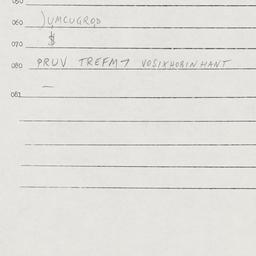 050
060 )UMCUGRQD
070 $
080 PRUV TREFM7 VOSIXHOBINHANT
081 —